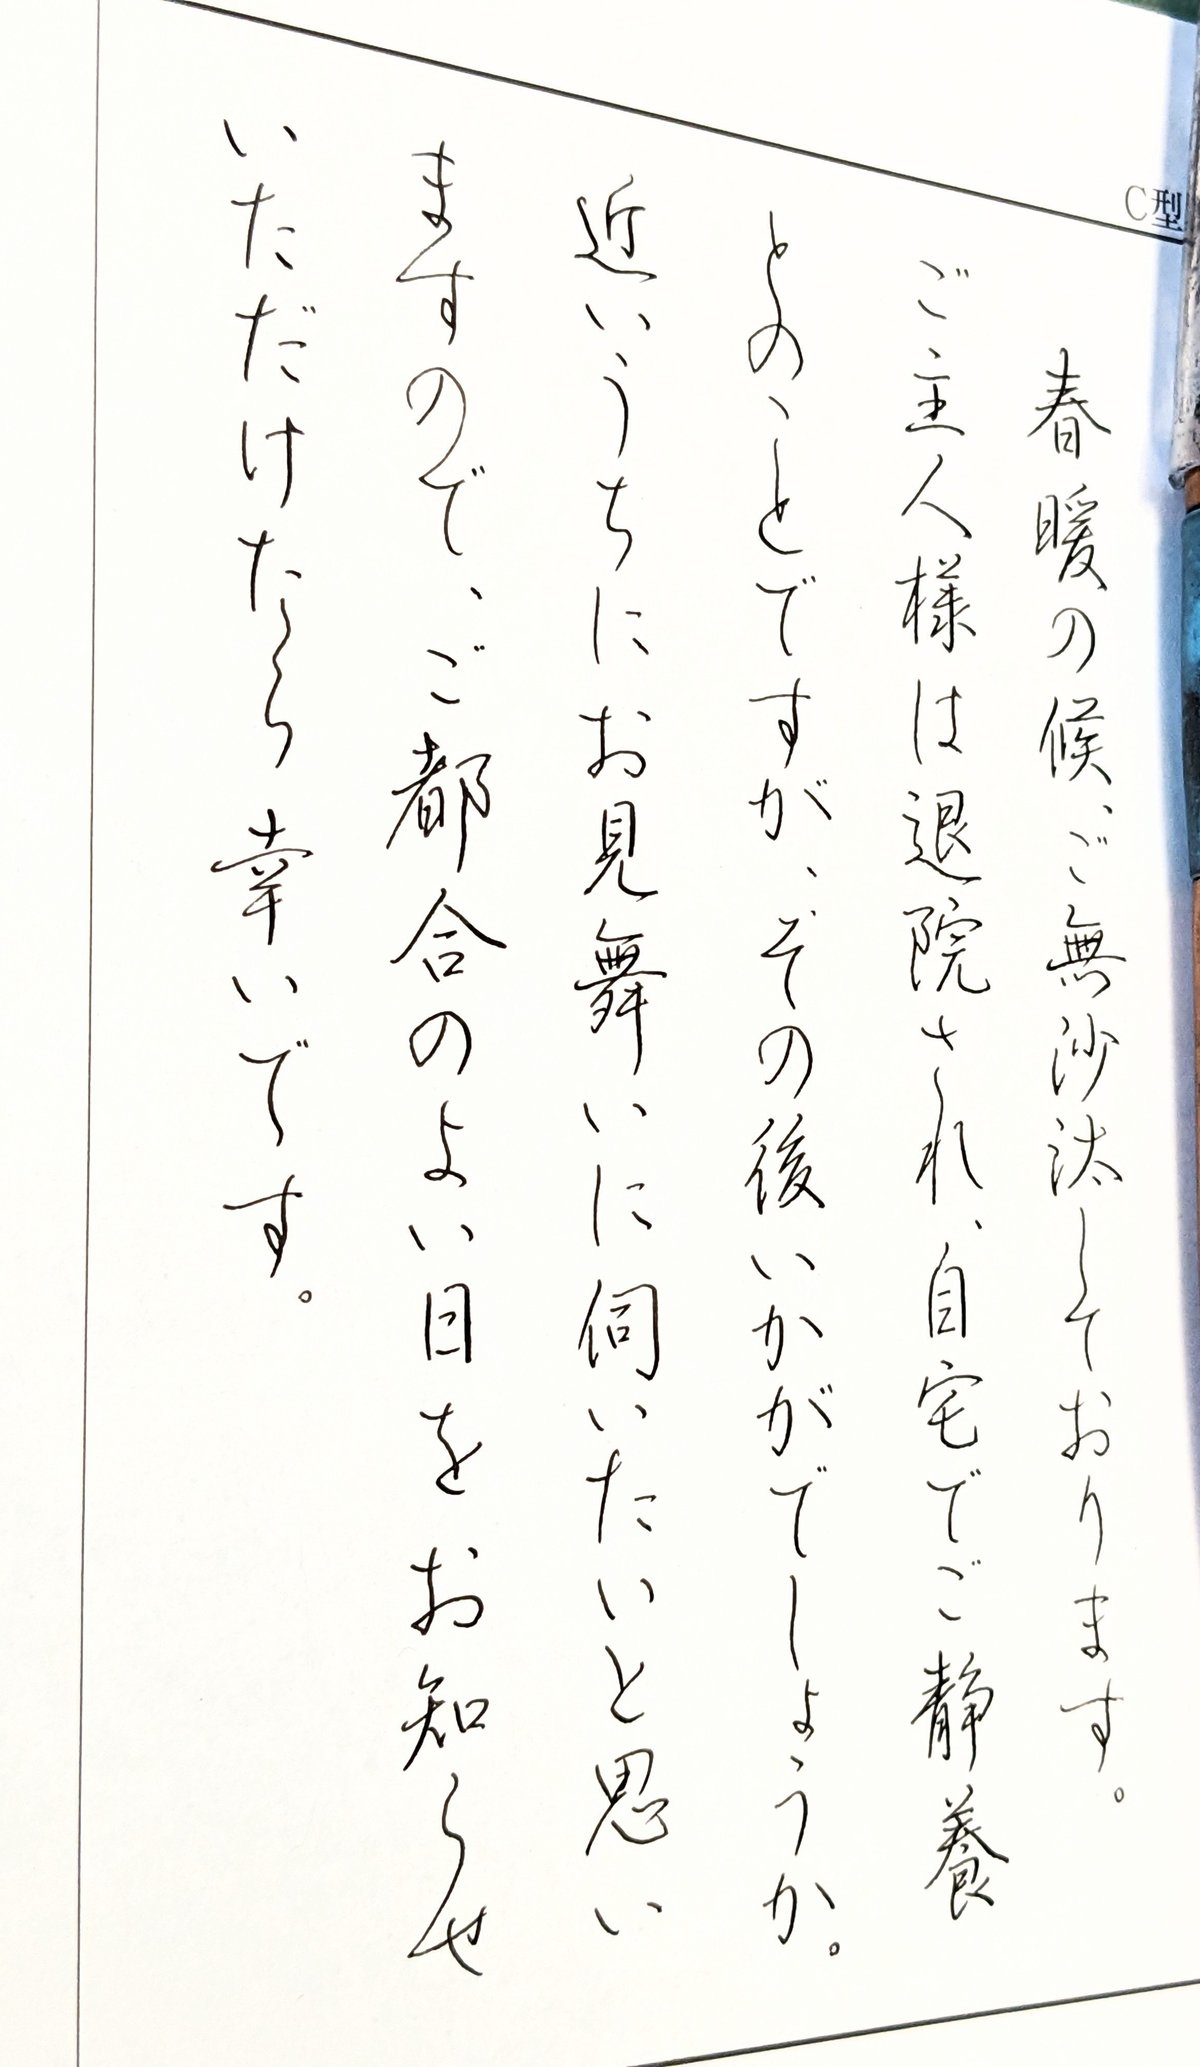 C型
春暖の候、ご無沙汰しております。
ご主人様は退院され、自宅でご静養
とのことですが、その後いかがでしょうか。
近いうちにお見舞いに伺いたいと思い
ますので、ご都合のよい日をお知らせ
いただけたら幸いです。